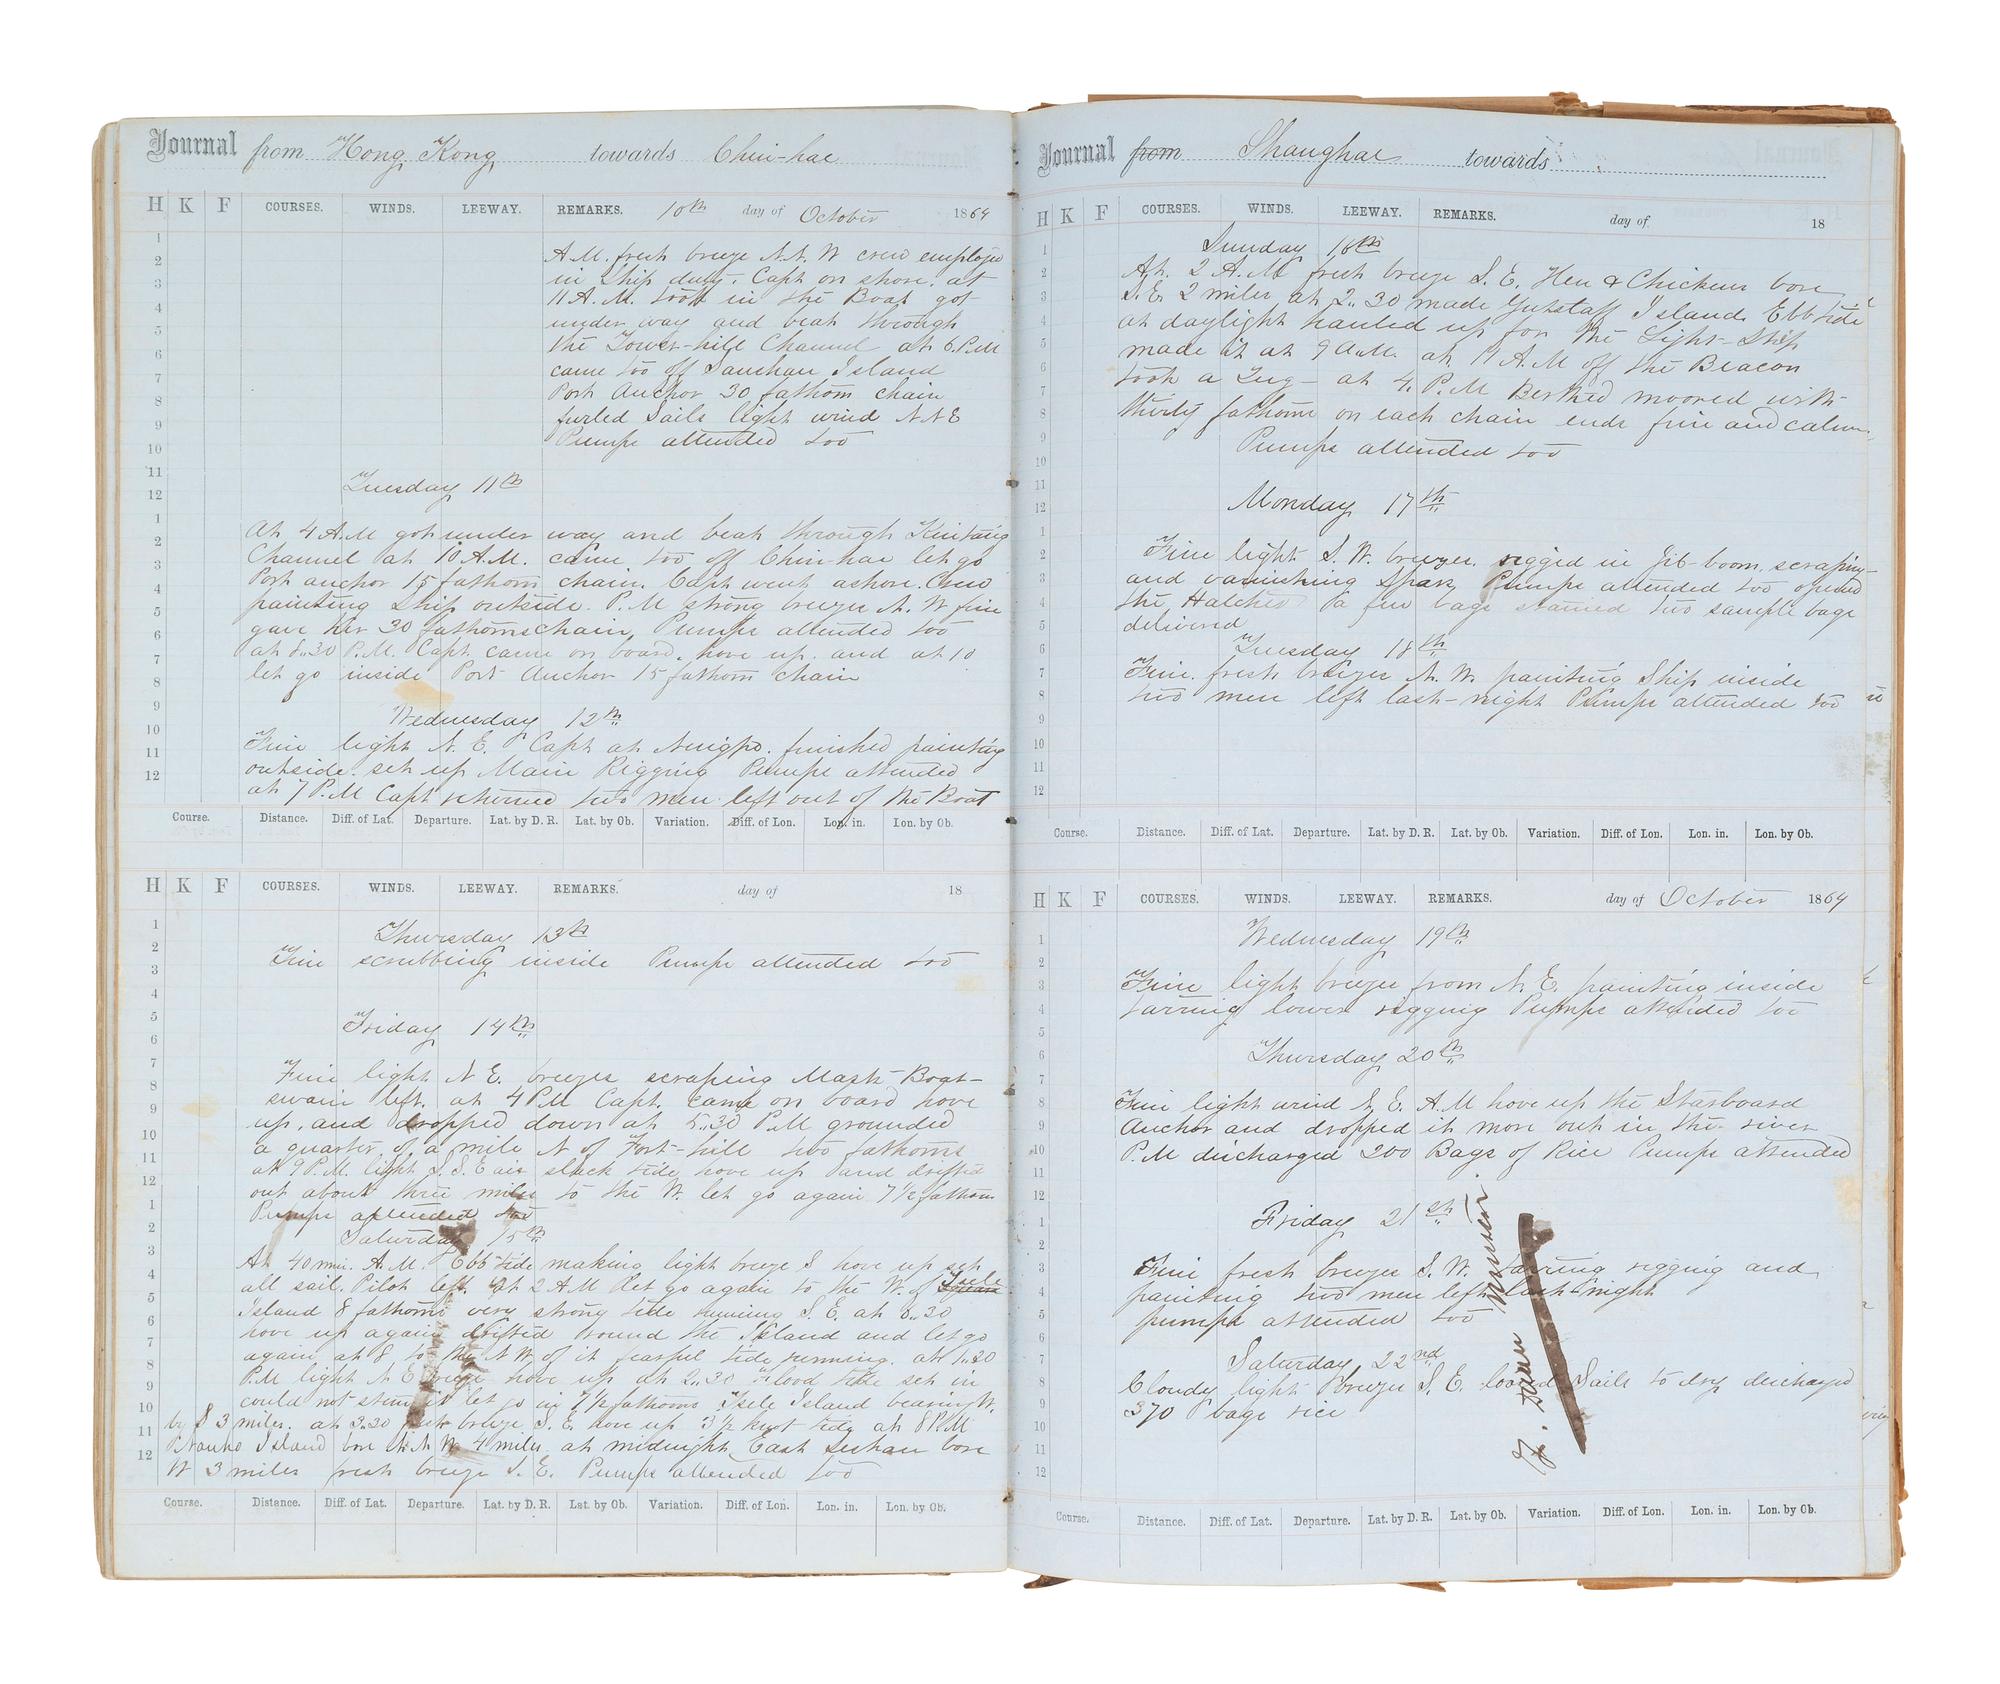 Journal from Hong Kong towards Chin-hae
H K F COURSES. WINDS. LEEWAY. REMARKS. 10th day of October 1864
1
2
3
4
5
6
7
8
9
10
11
12
A.M. fresh breeze N.N.W crew employed
in Ship duty. Capt on shore. at
11 A.M. took in the Boat got
under way and beat through
the Tower-hill Channel at 6. P.M
came too off Sanchau Island
Port Anchor 30 fathom chain
furled Sails light wind N N E
Pumps attended too
Tuesday 11th
1
2
3
4
5
6
7
8
9
10
11
12
At 4 A.M got under way and beat through Kintang
Channel at 10 A.M. came too off Chin-hae let go
Port anchor 15 fathom chain. Capt went ashore. Crew
painting Ship outside. P.M strong breezes N. W fine
gave her 30 fathoms chain, Pumps attended too
at 8..30 P.M. Capt. came on board. hove up. and at 10
let go inside Port Anchor 15 fathom chain
Wednesday 12th
Fine light N. E. Capt at Ningpo. finished painting
outside. set up Main Rigging Pumps attended
at 7 P.M Capt returned two men left out of the Boat
Course. Distance. Diff. of Lat. Departure. Lat. by D. R. Lat. by Ob. Variation. Diff. of Lon. Lon. in. Lon. by Ob.
H K F COURSES. WINDS. LEEWAY. REMARKS. day of 18
1
2
3
4
5
6
7
8
9
10
11
12
1
2
3
4
5
6
7
8
9
10
11
12
Thursday 13th
Fine scrubbing inside Pumps attended too
Friday 14th
Fine light N E. breezes scraping Mast Boat-
swain left. at 4 P.M Capt. came on board hove
up. and dropped down at 5..30 P.M grounded
a quarter of a mile N of Fort-hill two fathoms
at 9 P.M. light S.S.E air slack tide, hove up and drifted
out about three miles to the W. let go again 7 1/2 fathom
Pumps attended too
Saturday 15th
At 40 min. A.M. Ebb tide making light breeze S hove up set
all sail. Pilot left. at 2 A M let go again to the W. of Isele
Island 8 fathoms very strong tide running S. E. at 6..30
hove up again drifted round the Island and let go
again at 8, to the N W. of it fearful tide running. at 1..20
P.M light N E breeze hove up at 2..30 flood tide set in
could not stem it let go in 7 1/2 fathoms Isele Island bearing W.
by S 3 miles. at 3..30 fresh breeze S. E. hove up 3 1/2 knot tide at 8 P.M
Island bore N.N.W. 4 miles. at midnight East Seshau bore
W 3 miles fresh breeze S. E. Pumps attended too
Course. Distance. Diff. of Lat. Departure. Lat. by D. R. Lat. by Ob. Variation. Diff. of Lon. Lon. in. Lon. by Ob.
Journal from Shanghae towards
H K F COURSES. WINDS. LEEWAY. REMARKS. day of 18
1
2
3
4
5
6
7
8
9
10
11
12
Sunday 16th
At. 2 A.M fresh breeze S. E. Hen & Chickens bore
S.E. 2 miles at 2..30 made Gutzlaff Island. Ebb tide
at daylight hauled up for the Light-Ship
made it at 9 a.m. at 11 A.M off the Beacon
took a Tug- at 4. P.M Berthed moored with
thirty fathoms on each chain ends fine and calm.
Pumps attended too
Monday 17th
1
2
3
4
5
6
7
8
9
10
11
12
Fine light S. W. breezes. rigged in Jib-boom. scraping
and varnishing Spars, Pumps attended too opened
the Hatches a few bags stained two sample bags
delivered
Tuesday 18th
Fine. fresh breezes N. W. painting Ship inside
two men left last-night Pumps attended too
Course. Distance. Diff. of Lat. Departure. Lat. by D. R. Lat. by Ob. Variation. Diff. of Lon. Lon. in. Lon. by Ob.
H K F COURSES. WINDS. LEEWAY. REMARKS. day of October 1864
1
2
3
4
5
6
7
8
9
10
11
12
1
2
3
4
5
6
7
8
9
10
11
12
Wednesday 19th
Fine light breezes from N. E. painting inside
tarring lower rigging Pumps attended too
Thursday 20th
Fine light wind N. E. A.M hove up the Starboard
Anchor and dropped it more out in the river
P.M discharged 200 Bags of Rice Pumps attended
Friday 21st
Fine fresh breezes S. W. tarring rigging and
painting two men left last-night
pumps attended too
Saturday 22nd
Cloudy light breezes S. E. loosed Sails to dry discharged
370 bags rice
Course. Distance. Diff. of Lat. Departure. Lat. by D. R. Lat. by Ob. Variation. Diff. of Lon. Lon. in. Lon. by Ob.